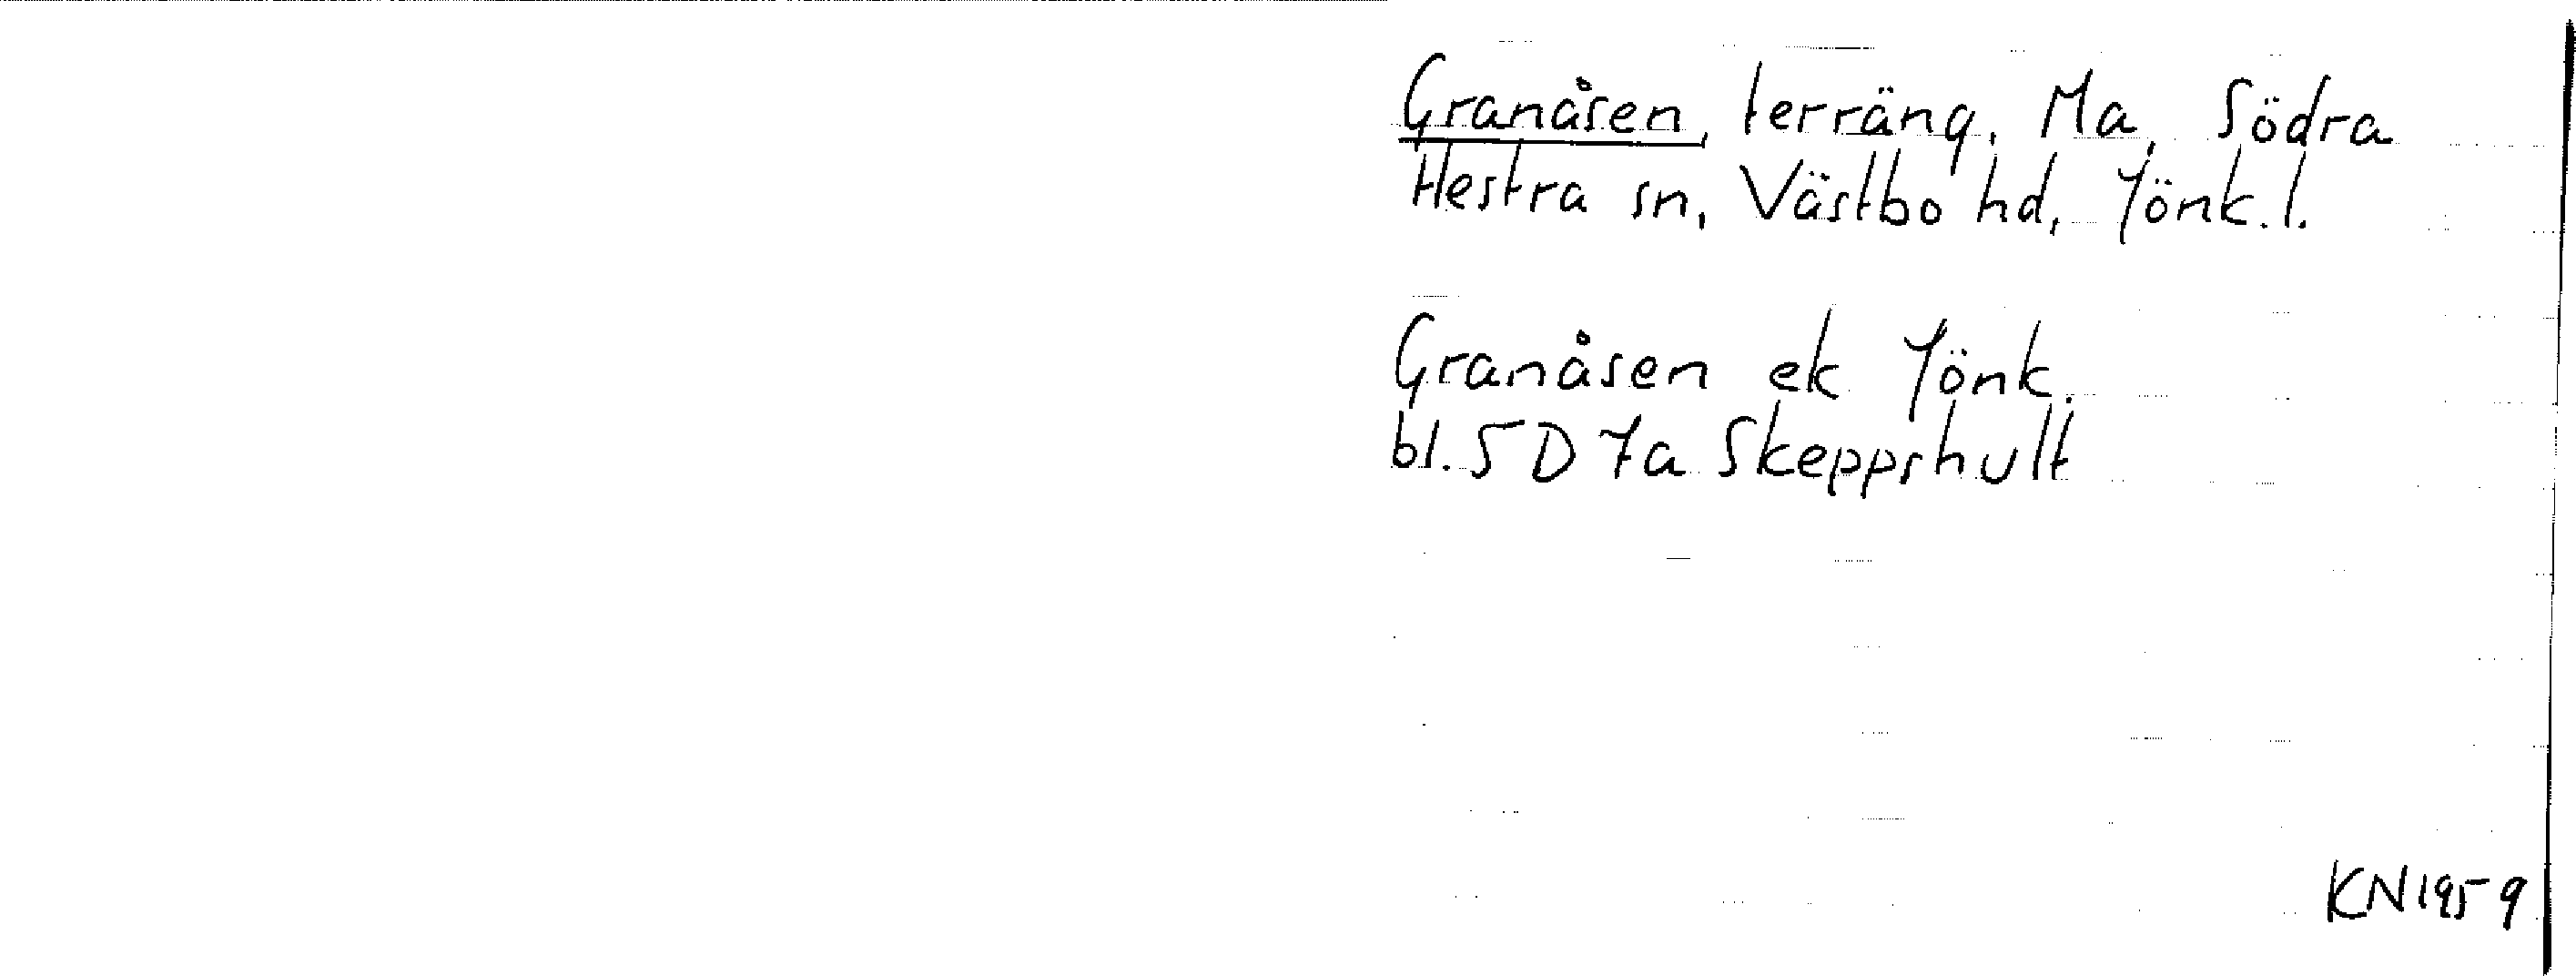 Granåsen, terräng, Ma, Södra
Hestra sn, Västbo hd, Jönk. l.
Granåsen ek Jönk.
bl. 5 D 7a Skeppshult
KN 1959